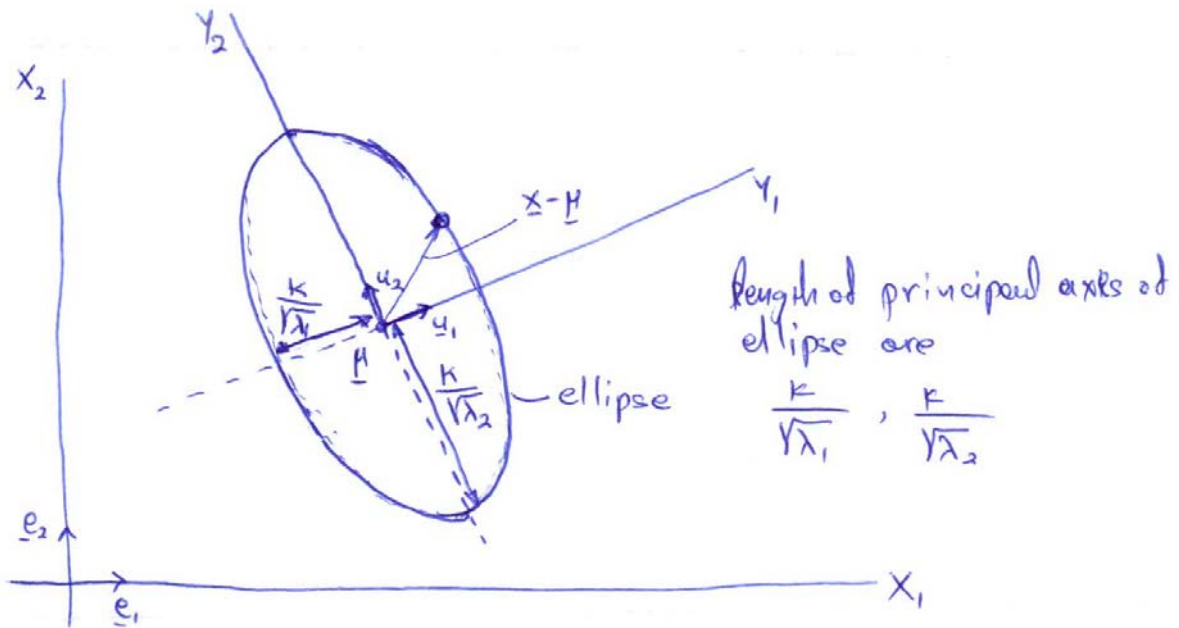 Y₂
X₂
x - μ
Y₁
u₂
K/√λ₁
u₁
μ
K/√λ₂
ellipse
length of principal axes of
ellipse are
K/√λ₁ , K/√λ₂
e₂
e₁
X₁